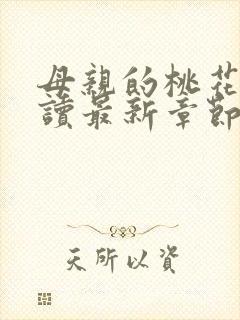 母親的桃花
讀最新章節
天所以資